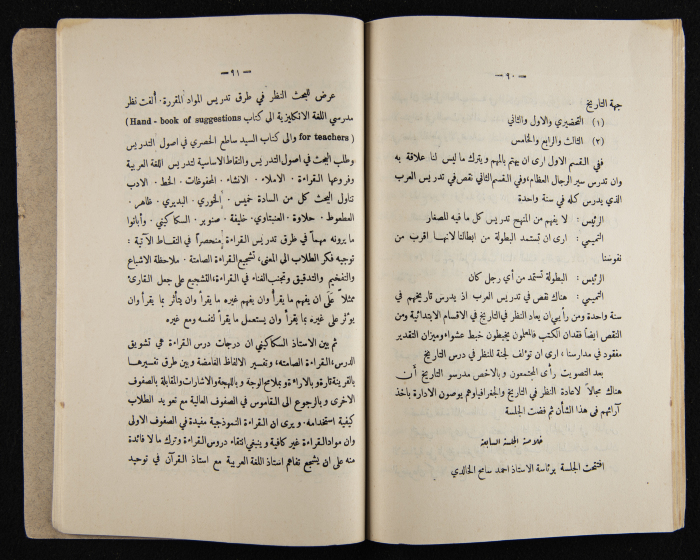 — ٩٠ —
جهة التاريخ:
(١) التحضيري والاول والثاني
(٢) الثالث والرابع والخامس
ففي القسم الاول ارى ان يهتم بالمهم ويترك ما ليس لنا علاقة به
وان تدرس سير الرجال العظام، وفي القسم الثاني نقص في تدريس العرب
الذي يدرس كله في سنة واحدة
الرئيس: لا يفهم من المنهج تدريس كل ما فيه للصغار
التميمي: ارى ان تستمد البطولة من ابطالنا لانها اقرب من
نفوسنا
الرئيس: البطولة تستمد من أي رجل كان
التميمي: هناك نقص في تدريس العرب اذ يدرس تاريخهم في
سنة واحدة ومن رأيي ان يعاد النظر في التاريخ في الاقسام الابتدائية ومن
النقص ايضاً فقدان الكتب فالمعلمون يخبطون خبط عشواء وميزان التقدير
مفقود في مدارسنا، ارى ان تؤلف لجنة للنظر في درس التاريخ
بعد التصويت رأى المجتمعون وبالاخص مدرسو التاريخ أن
هناك مجالاً لاعادة النظر في التاريخ والجغرافيا وهم يوصون الادارة باخذ
آرائهم في هذا الشأن ثم فضت الجلسة
خلاصة الجلسة السابعة
افتتحت الجلسة برئاسة الاستاذ احمد سامح الخالدي
— ٩١ —
عرض للبحث النظر في طرق تدريس المواد المقررة. ألفت نظر
مدرسي اللغة الانكليزية الى كتاب (Hand - book of suggestions
for teachers) والى كتاب السيد ساطع الحصري في اصول التدريس
وطلب البحث في اصول التدريس والنقاط الاساسية لتدريس اللغة العربية
وفروعها القراءة. الاملاء. الانشاء. المحفوظات. الخط. الادب
تناول البحث كل من السادة خميس. الخوري. البديري. ظاهر.
العطعوط. حلاوة. العنبتاوي. خليفة. صنوبر. السكاكيني. وأبانوا
ما يرونه مهماً في طرق تدريس القراءة منحصراً في النقاط الآتية:
توجيه فكر الطلاب الى المعنى، تشجيع القراءة الصامتة. ملاحظة الاشباع
والتفخيم والتدقيق وتجنب الغناء في القراءة، التشجيع على جعل القارئ
ممثلاً عَلَى ان يفهم ما يقرأ وان يفهم غيره ما يقرأ وان يتأثر بما يقرأ وان
يؤثر على غيره بما يقرأ وان يستعمل ما يقرأ لنفسه ومع غيره
ثم بين الاستاذ السكاكيني ان درجات درس القراءة هي تشويق
الدرس، القراءة الصامته، وتفسير الالفاظ الغامضة وبين طرق تفسيرها
بالقرينة تارة وبالاراءة وبملامح الوجه وباللهجة والاشارات والمقابلة بالصفوف
الاخرى وبالرجوع الى القاموس في الصفوف العالية مع تعويد الطلاب
كيفية استخدامه. ويرى ان القراءة النموذجية مفيدة في الصفوف الاولى
وان مواد القراءة غير كافية وينبغي انتقاء دروس القراءة وترك ما لا فائدة
منه على ان يشجع تفاهم استاذ اللغة العربية مع استاذ القرآن في توحيد